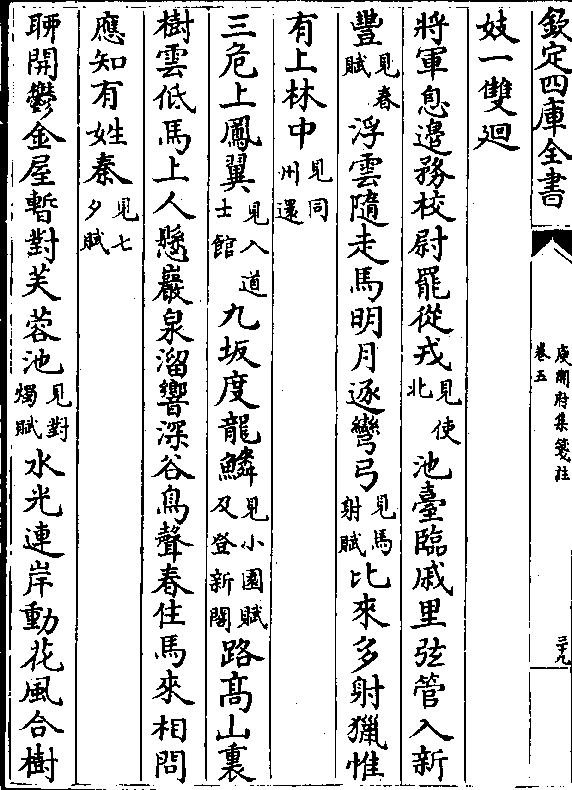 欽定四庫全書
庾開府集箋註
卷五
妓一雙迴
將軍息邊務校尉罷從戎見使北池臺臨戚里弦管入新
豐見春賦浮雲隨走馬明月逐彎弓見馬射賦比來多射獵惟
有上林中見同州還
三危上鳳翼見入道士館九坂度龍鱗見小園賦及登新閣路髙山裏
樹雲低馬上人懸巖泉溜響深谷鳥聲春住馬來相問
應知有姓秦見七夕賦
聊開鬱金屋暫對芙蓉池見對燭賦水光連岸動花風合樹